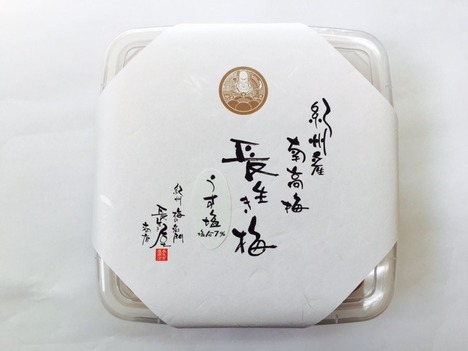 紀州産
南高梅
長生き梅
うす塩
塩分7%
紀州 梅の
長
屋